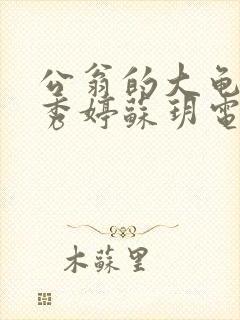 公翁的大龟
秀婷蘇玥電
木蘇里